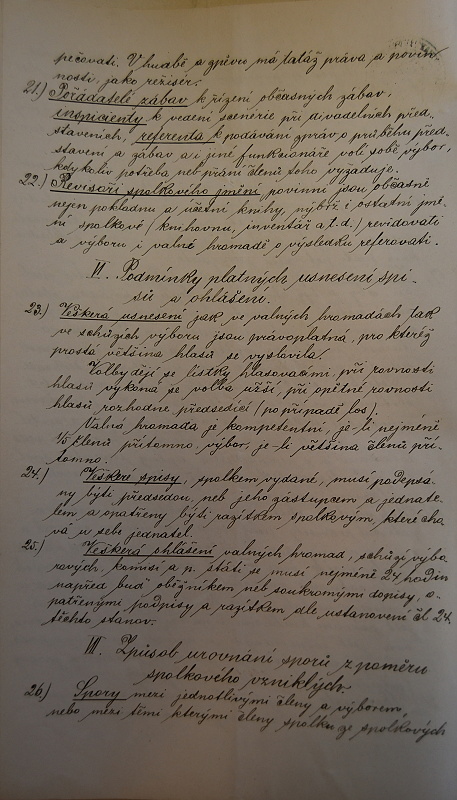 pečovati. V hudbě a zpěvu má taláž práva a povin-
nosti, jako režisér.
21.) Pořadatelé zábav k řízení občasných zábav,
inspicienty k vedení scenérie při divadelních před-
staveních, referenta k podávání zpráv o průběhu před-
stavení a zábav a i jiné funkcionáře volí sobě výbor,
kdykoliv potřeba neb přání členů toho vyžaduje.
22.) Revisoři spolkového jmění povinni jsou občasně
nejen pokladnu a účetní knihy, nýbrž i ostatní jmě-
ní spolkové (knihovnu, inventář a t. d.) revidovati
a výboru i valné hromadě o výsledku referovati.
VI. Podmínky platných usnesení spi-
sů a ohlášení.
23.) Veškerá usnesení jak ve valných hromadách tak
ve schůzích výboru jsou právoplatná, pro kteréž
prostá většina hlasů se vyslovila.
Volby dějí se lístky hlasovacími, při rovnosti
hlasů vykoná se volba užší, při opětné rovnosti
hlasů rozhodne předsedící (po případě los).
Valná hromada je kompetentní, je-li nejméně
1/5 členů přítomno, výbor, je-li většina členů pří-
tomno.
24.) Veškeré spisy, spolkem vydané, musí podepsá-
ny býti předsedou, neb jeho zástupcem a jednate-
lem a opatřeny býti razítkem spolkovým, které cho-
vá u sebe jednatel.
25.) Veškerá ohlášení valných hromad, schůzí výbo-
rových, komisí a p. státi se musí nejméně 24 hodin
napřed buď oběžníkem neb soukromými dopisy, o-
patřenými podpisy a razítkem dle ustanovení čl. 24.
těchto stanov.
III. Způsob urovnání sporů z poměru
spolkového vzniklých.
26.) Spory mezi jednotlivými členy a výborem,
nebo mezi těmi kterými členy spolku ze spolkových